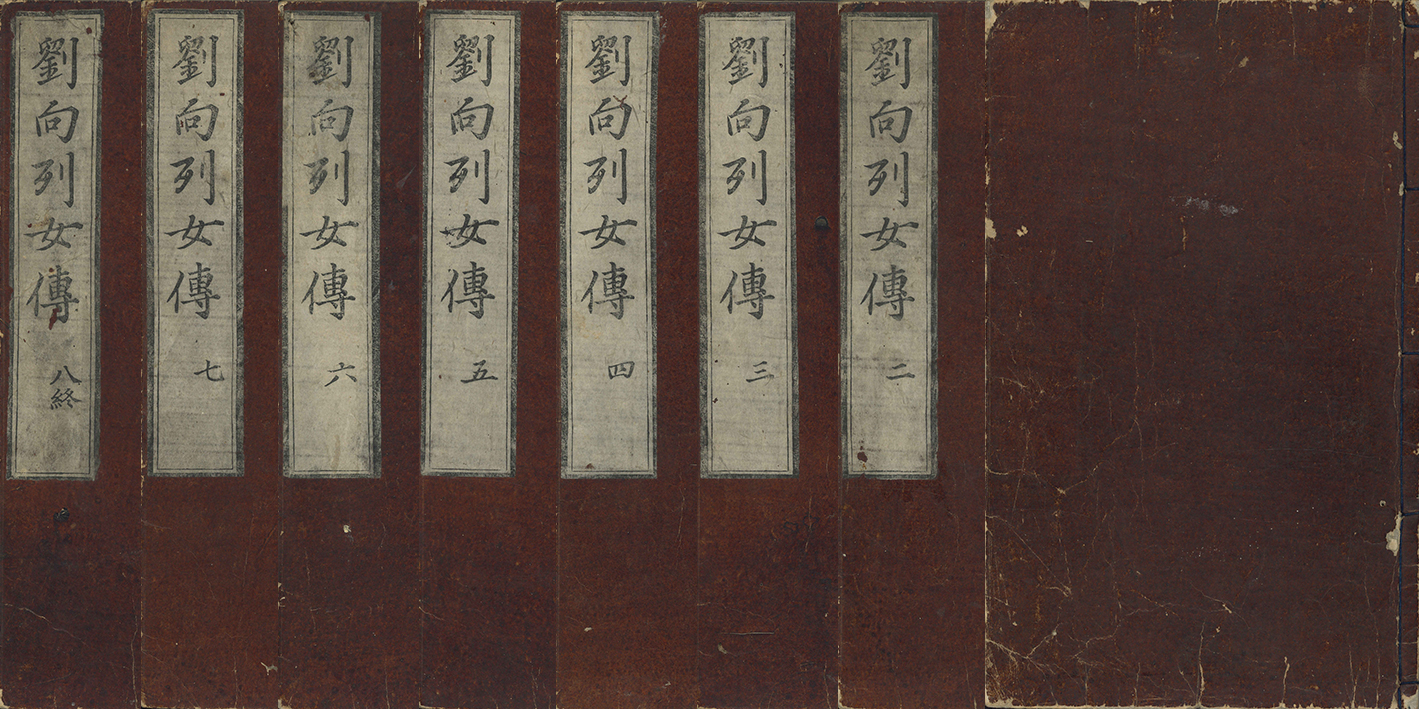 劉向列女傳 二
劉向列女傳 三
劉向列女傳 四
劉向列女傳 五
劉向列女傳 六
劉向列女傳 七
劉向列女傳 八終